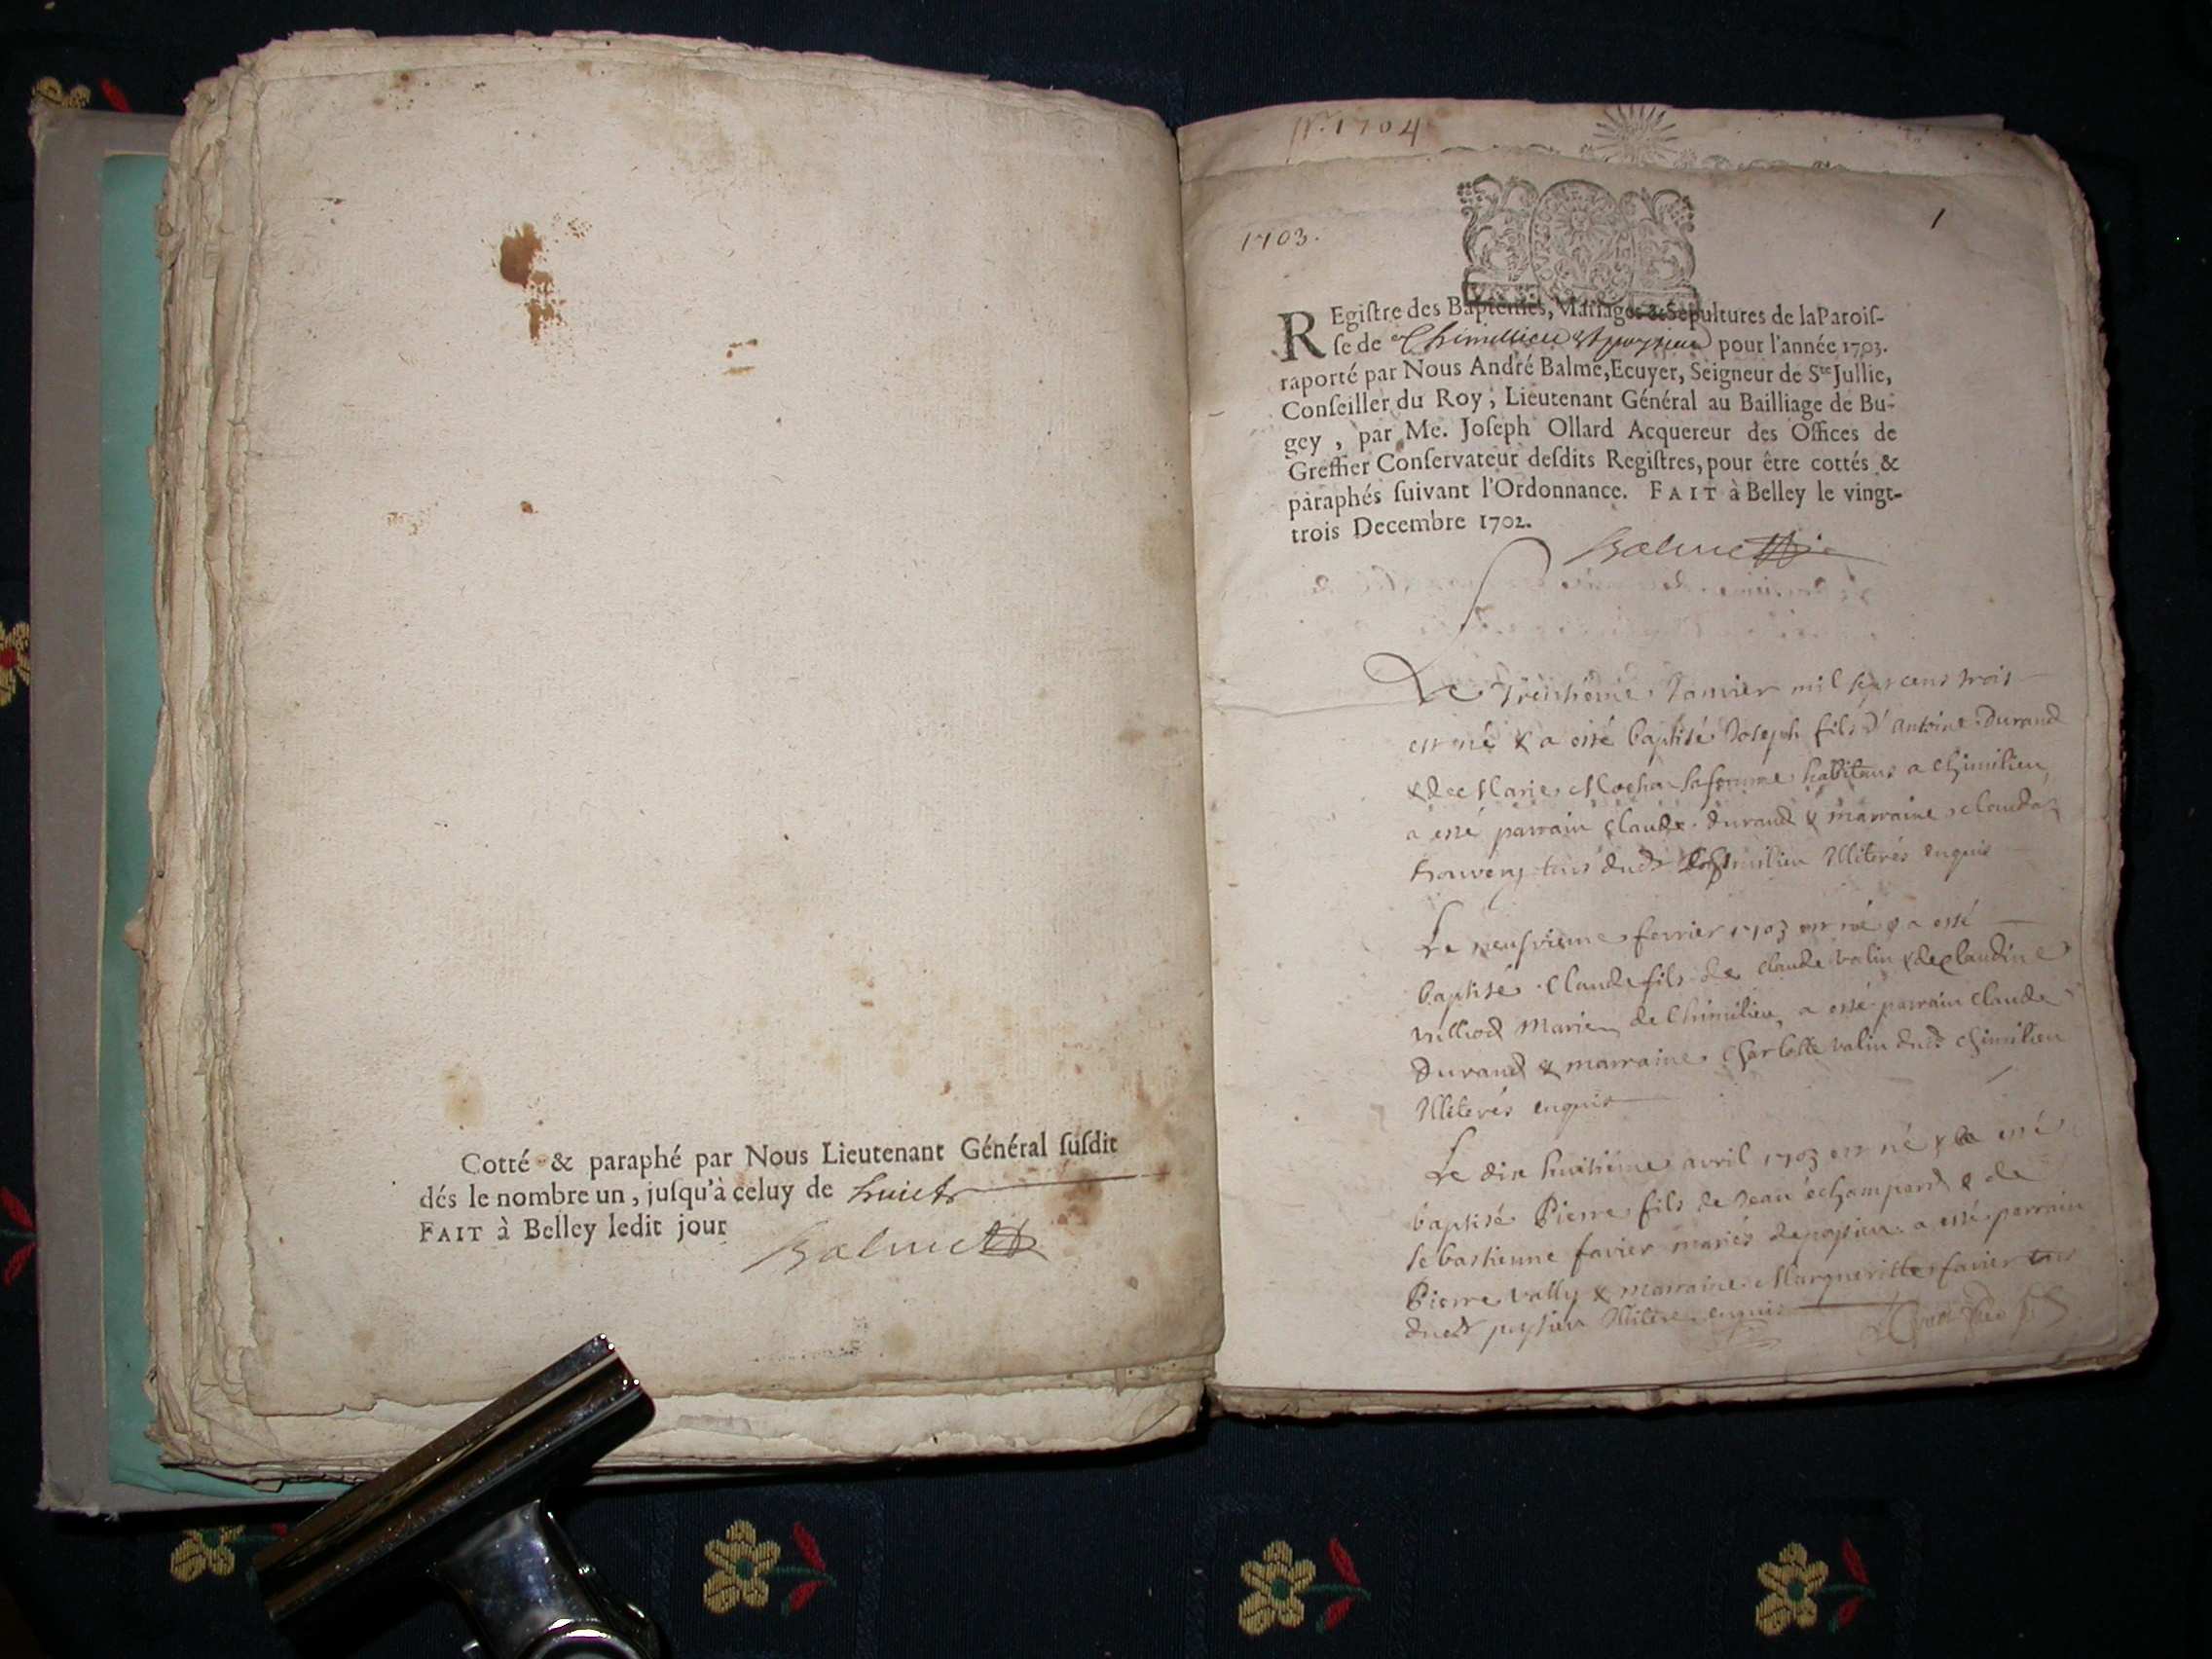 Cotté & paraphé par Nous Lieutenant Général ſuſdit
dés le nombre un, juſqu'à celuy de huict
FAIT à Belley ledit jour
Balme
1704
1703.
1
REgiſtre des Baptêmes, Mariages & Sepultures de la Paroiſ-
ſe de Chimillieu & poypieu pour l'année 1703.
raporté par Nous André Balme, Ecuyer, Seigneur de Ste Jullie,
Conſeiller du Roy, Lieutenant Général au Bailliage de Bu-
gey, par Me. Joſeph Ollard Acquereur des Offices de
Greffier Conſervateur deſdits Regiſtres, pour être cottés &
paraphés ſuivant l'Ordonnance. FAIT à Belley le vingt-
trois Decembre 1702.
Balme
Le Treisiéme Janvier mil sept cens trois
est né & a esté baptisé Joseph fils d'Antoine Durand
& de Marie sa femme habitans a Chimilieu
a esté parrain Claude Durand & marraine Clauda
tous dud Chimilieu Illiterés enquis
Le neufvieme fevrier 1703 est né & a esté
baptisé Claude fils de Claude valin & de Claudine
Mariés de Chimilieu, a esté parrain Claude
Durand & marraine Charlotte valin dud Chimilieu
Illiterés enquis
Le dix huitiéme avril 1703 est né & a esté
baptisé Pierre fils de Jean & de
sebastienne favier mariés de poysieu a esté parrain
Pierre vally & marraine Margueritte favier tous
dud poysieu Illiteres enquis